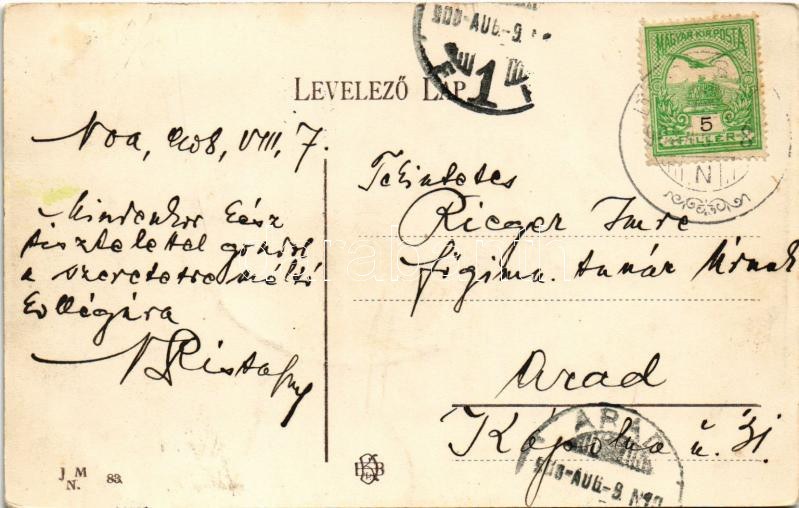 908-AUG.-9.
1
LEVELEZŐ LAP
MAGYAR·KIR·POSTA
5
FILLÉR
8
N
Noa, 908, VIII, 7.
Mindenkor
tisztelettel gondol
a szeretetre méltó
Collégára
Tekintetes
Rieger Imre
főgimn. tanár Úrnak
Arad
Kápolna u. 31.
ARAD
908-AUG.-9.
J M
N. 83.